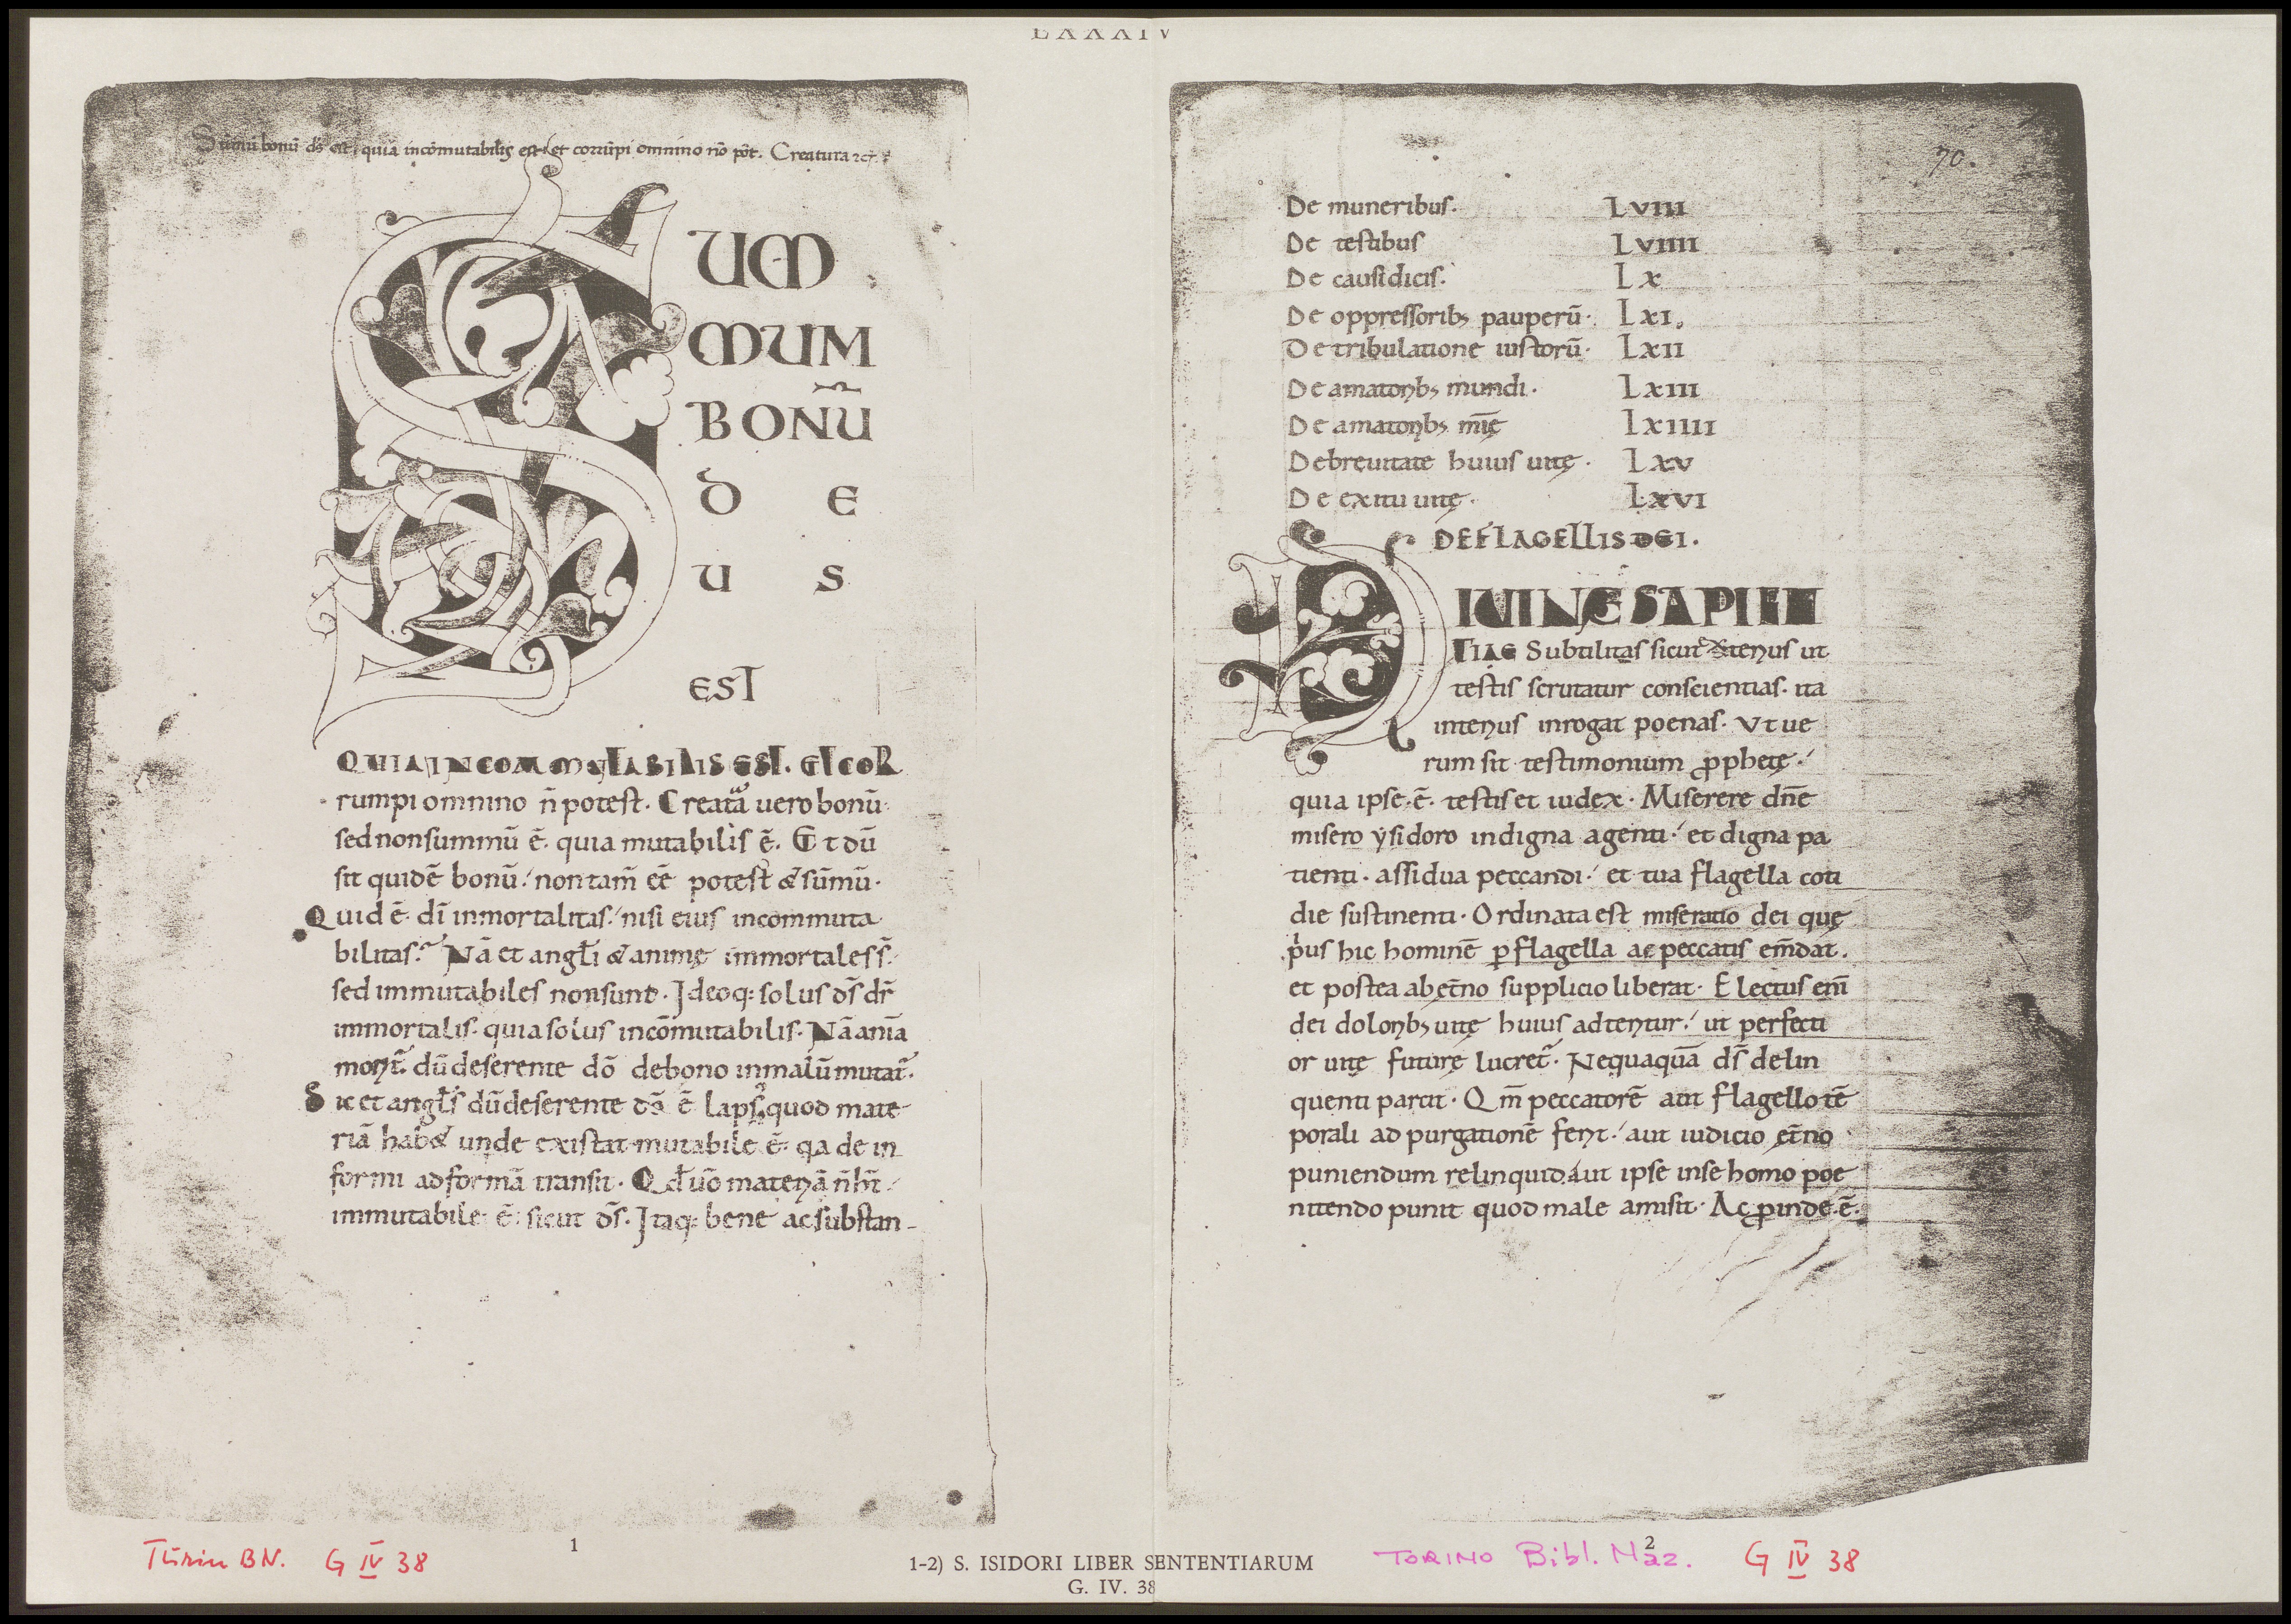 LXXXIV
Sūmū bonū ds̄ est, quia incōmutabilis est, et corrūpi omnino nō pōt. Creatura
SUM
MUM
BONŪ
D E
U S
EST
QUIA INCOMMUTABILIS EST. ET COR
rumpi omnino n̄ potest. Creatā uero bonū.
sed non summū ē. quia mutabilis ē. Et dū
sit quidē bonū. non tam̄ eē potest & sūmū.
Quid ē. dī inmortalitas. nisi eius incommuta
bilitas. Nā et angl̄i & animę immortales s̄.
sed immutabiles non sunt. Ideoq: solus ds̄ dr̄
immortalis. quia solus incōmutabilis. Nā anīa
morit̄. dū deserente dō de bono in malū mutat̄.
Sic et angl̄s dū deserente dō ē laps, quod mate
riā hab& unde existat mutabile ē. qa de in
formi ad formā transit. Qd̄ uō materiā n̄ ht̄.
immutabile ē. sicut ds̄. Itaq: bene ac substan-
70.
De muneribus. LVIII
De testibus LVIIII
De causidicis. LX
De oppressorib; pauperū. LXI.
De tribulatione iustorū. LXII
De amatorib; mundi. LXIII
De amatorib; mīę LXIIII
De breuitate huius uitę. LXV
De exitu uitę. LXVI
DE FLAGELLIS DEI.
DIUINĘ SAPIEN
TIAE Subtilitas sicut interius ut
testis scrutatur conscientias. ita
interius inrogat poenas. Ut ue
rum sit testimonium ꝓphetę.
quia ipse. ē. testis et iudex. Miserere dn̄e
misero ẏsidoro indigna agenti. et digna pa
tienti. assidua peccandi. et tua flagella coti
die sustinenti. Ordinata est miseratio dei quę
pius hic hominē ꝑ flagella a peccatis em̄dat.
et postea ab ęt̄no supplicio liberat. Electus eni
dei dolorib; uitę huius adteritur. ut perfecti
or uitę futurę lucret̄. Nequaquā ds̄ delin
quenti parcit. Qm̄ peccatorē aut flagello tē
porali ad purgationē ferit. aut iudicio ęt̄no
puniendum relinquid. aut ipse in se homo poe
nitendo punit quod male amisit. Ac ꝓinde. ē.
1
2
Turin BN. G IV 38
TORINO Bibl. Naz. G IV 38
1-2) S. ISIDORI LIBER SENTENTIARUM
G. IV. 38